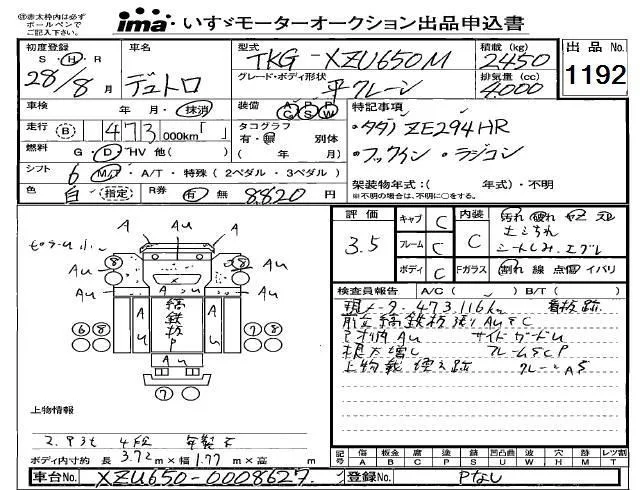 ㊟赤太枠内は必ず
ボールペンで
ご記入下さい。
ima いすゞモーターオークション出品申込書
初度登録 S・H・R 28/8月
車名 デュトロ
型式 TKG-XZU650M
積載(kg) 2450
出品No. 1192
グレード・ボディ形状 平クレーン
排気量(cc) 4000
車検 年・月・抹消
装備 A C P S P W
特記事項
走行 (B) 473,000km「 」
タコグラフ 有・無 別体
(年 月)
・タダノZE294HR
・フックイン・ラジコン
燃料 G・D・HV 他( )
シフト 6 M/T・A/T・特殊(2ペダル・3ペダル)
架装物年式:( 年式)・不明
※不明の場合は、不明に○をする。
色 白(指定) R券 有 無 8820円
評価 3.5
キャブ C
フレーム C
ボディ C
内装 C
汚れ 破れ
シートしみ
Fガラス 割れ 線 点傷 イバリ
検査員報告 A/C( ) B/T( )
現メーター473,116km 看板跡
サイドガードU
上物載せ換え跡
A A A
Au Au Au Au
8 8
縞鉄板P
A A
6 8 7 8
Au
7
上物情報
2.93t 4段
ボディ内寸約 長 3.72m×幅 1.77m×高 m
記号 傷A 板金B 腐C 塗P 錆S 凹凸曲U 波W 穴H 跡M レツ割T
車台No. XZU650-0008627
登録No. Pなし